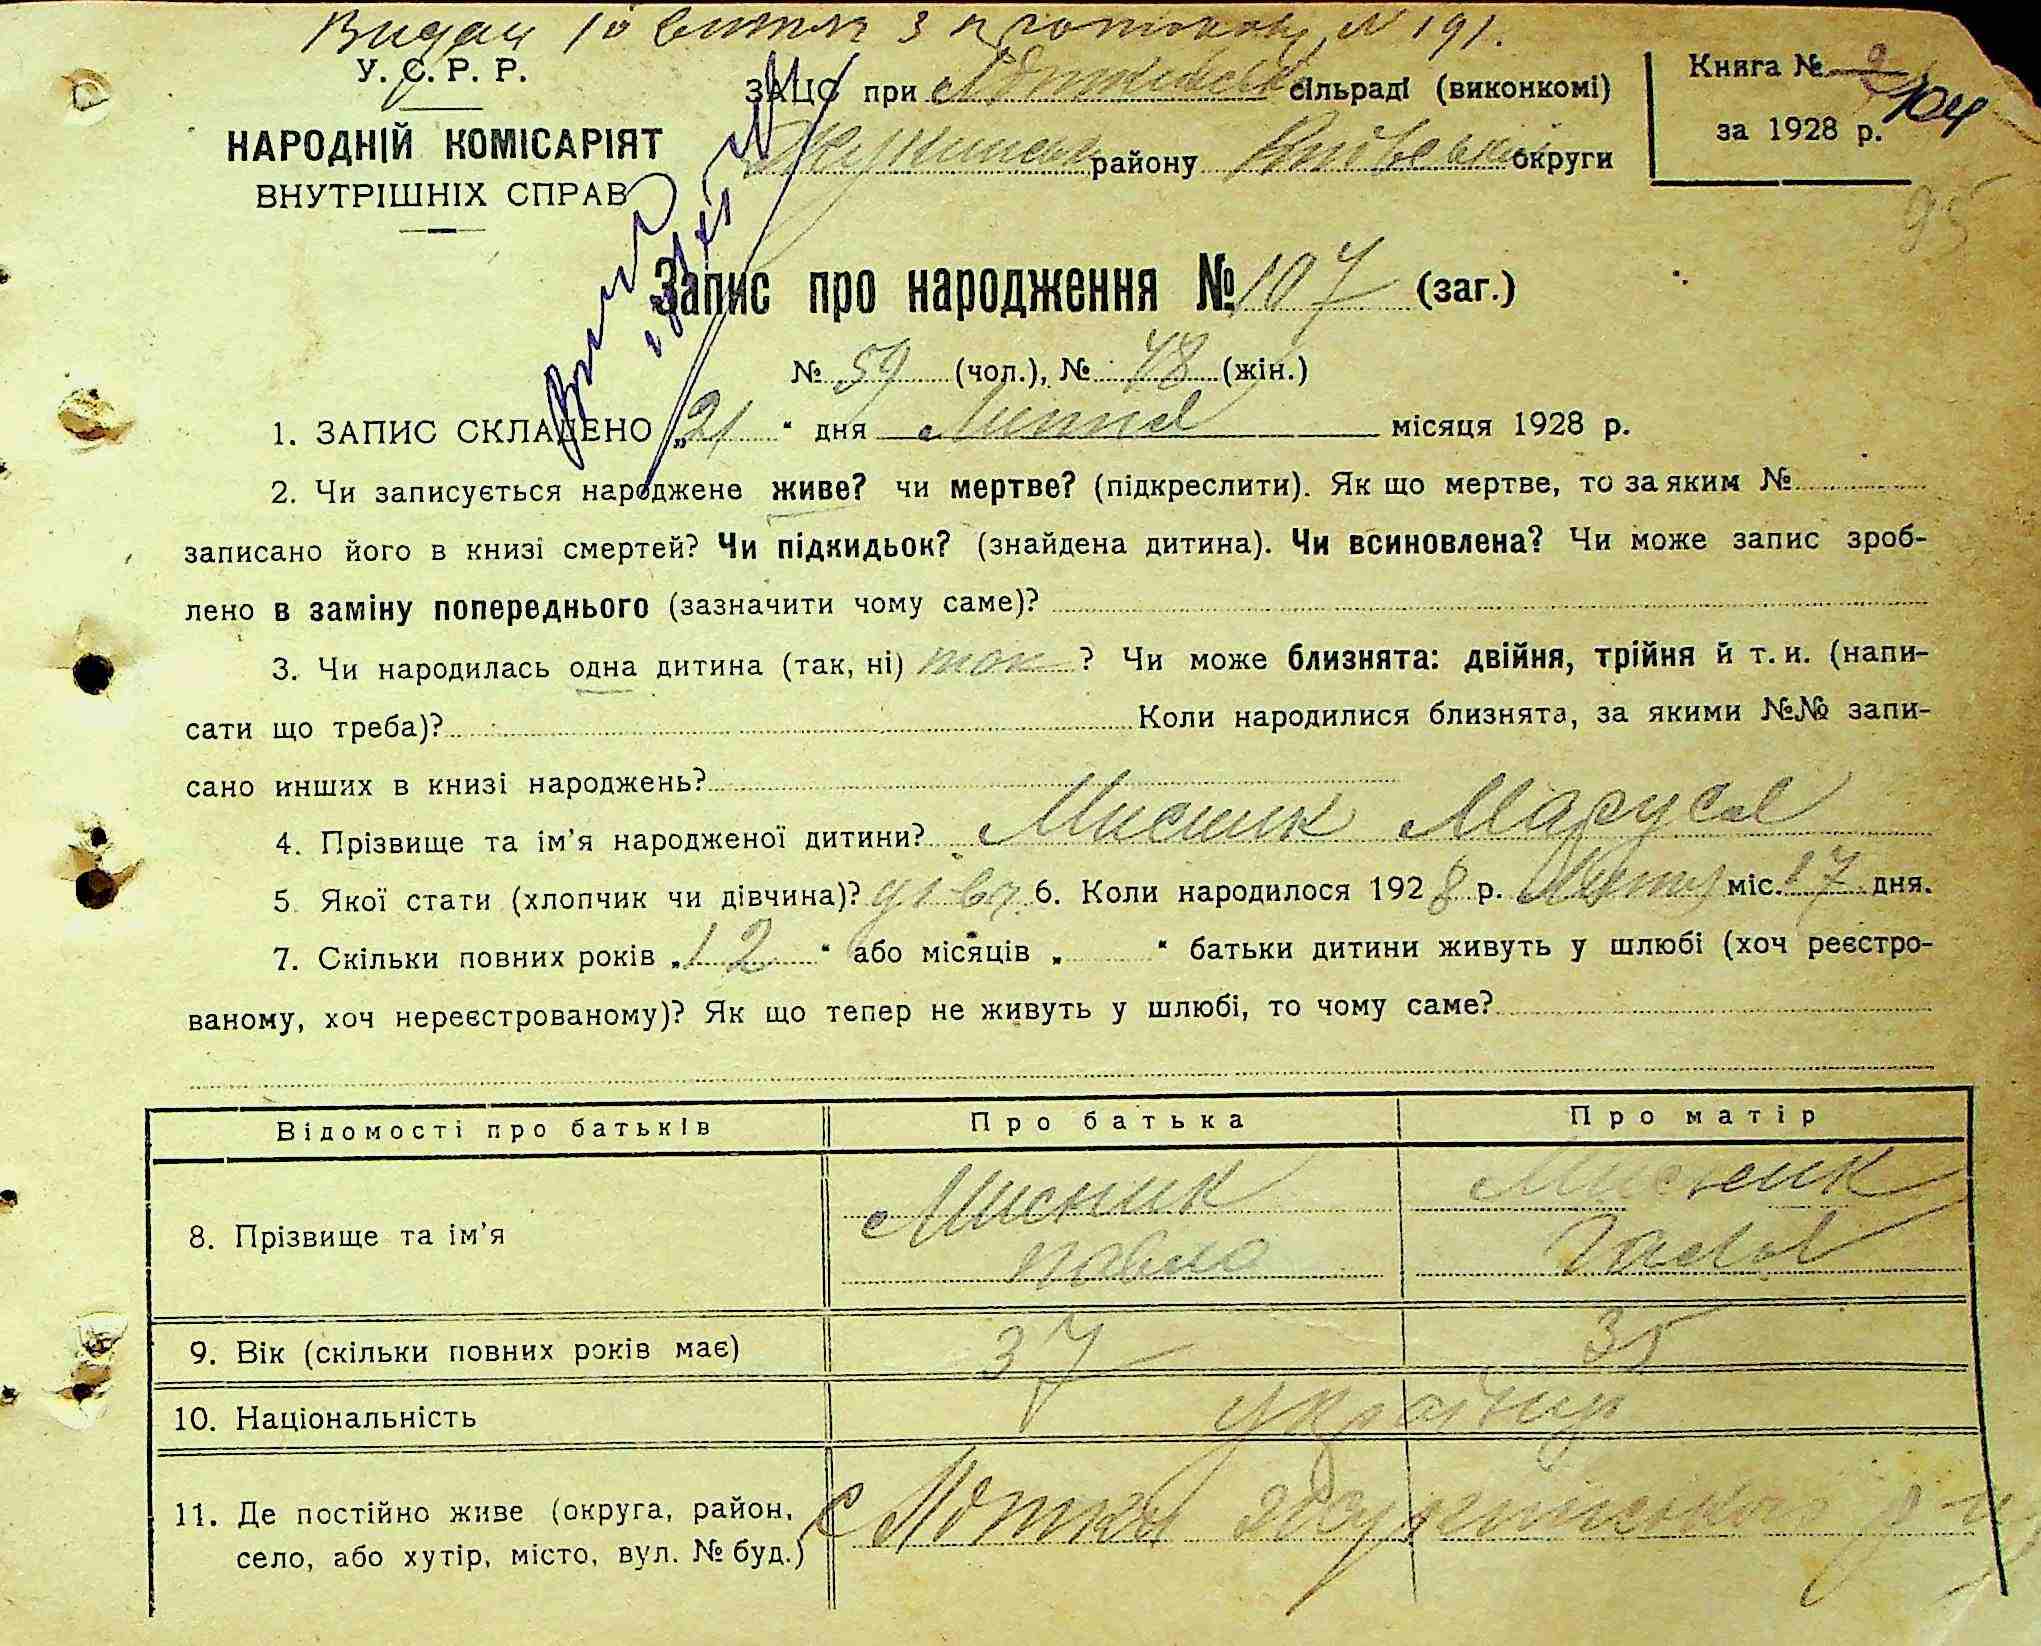 Видан
з
№ 191.
У. С. Р. Р.
НАРОДНІЙ КОМІСАРІЯТ
ВНУТРІШНІХ СПРАВ
ЗАЦС при сільраді (виконкомі)
району округи
Книга № 104
за 1928 р.
95
Запис про народження № 107 (заг.)
№ 59 (чол.), № 48 (жін.)
1. ЗАПИС СКЛАДЕНО „21“ дня Липня місяця 1928 р.
2. Чи записується народжене живе? чи мертве? (підкреслити). Як що мертве, то за яким №
записано його в книзі смертей? Чи підкидьок? (знайдена дитина). Чи всиновлена? Чи може запис зроб-
лено в заміну попереднього (зазначити чому саме)?
3. Чи народилась одна дитина (так, ні) так? Чи може близнята: двійня, трійня й т. и. (напи-
сати що треба)? Коли народилися близнята, за якими №№ запи-
сано инших в книзі народжень?
4. Прізвище та ім’я народженої дитини? Мисник Маруся
5. Якої стати (хлопчик чи дівчина)? дівч. 6. Коли народилося 1928 р. Липня міс. 17 дня.
7. Скільки повних років „12“ або місяців „ “ батьки дитини живуть у шлюбі (хоч реєстро-
ваному, хоч нереєстрованому)? Як що тепер не живуть у шлюбі, то чому саме?
Відомості про батьків Про батька Про матір
8. Прізвище та ім’я Мисник Павло Мисник Галя
9. Вік (скільки повних років має) 37 35
10. Національність україн
11. Де постійно живе (округа, район,
село, або хутір, місто, вул. № буд.) с